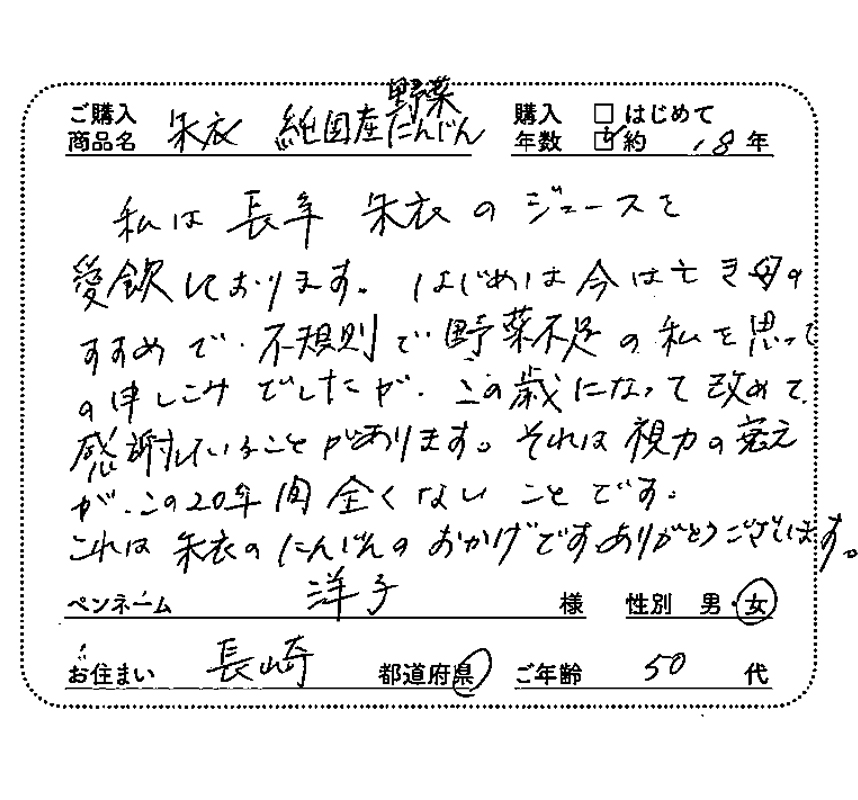 ご購入商品名 朱衣 純国産野菜にんじん 購入年数 □はじめて ☑約 18年
私は長年 朱衣のジュースを
愛飲しております。はじめは今は亡き母の
すすめで、不規則で野菜不足の私を思って
の申しこみでしたが、この歳になって改めて、
感謝していることがあります。それは視力の衰え
が、この20年間全くないことです。
これは朱衣のにんじんのおかげです。ありがとうございます。
ペンネーム 洋子 様 性別 男・女
お住まい 長崎 都道府県 ご年齢 50 代